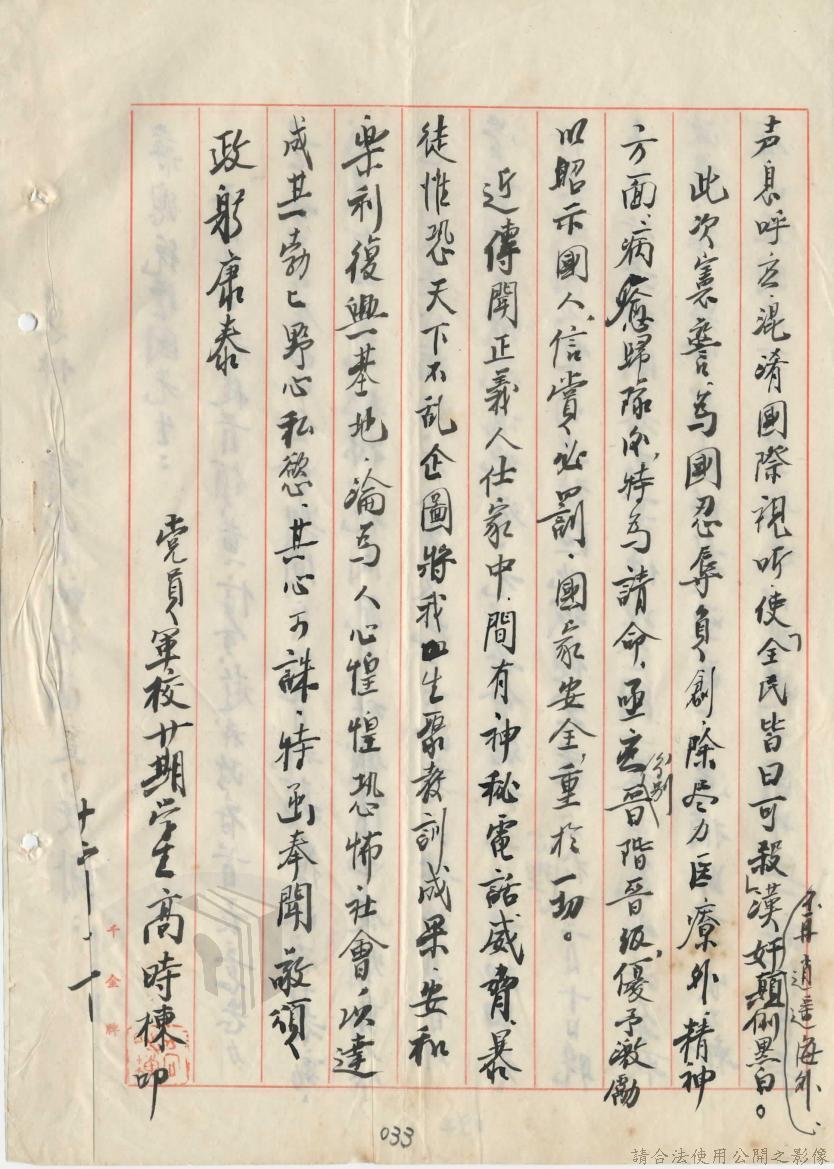 声息呼应混淆國際視听、使「全民皆曰可殺」漢奸顛倒黑白。
不再逍遥海外、
此次憲警、為國忍辱負創、除尽力医療外、精神
方面、病癒歸隊後、特為請命、亟应分别晉階晉级、優予激勵
以昭示國人、信賞必罰、國家安全、重於一切。
近傳聞正義人仕家中、間有神秘電話威脅、暴
徒惟恐天下不乱企圖將我生聚教訓成果、安和
樂利復興基地、淪為人心惶惶恐怖社會、以達
成其勃勃野心私慾、其心可誅、特函奉聞敬頌
政躬康泰
党員軍校廿期学生高時棟叩
十二、十
千金牌
033
請合法使用公開之影像